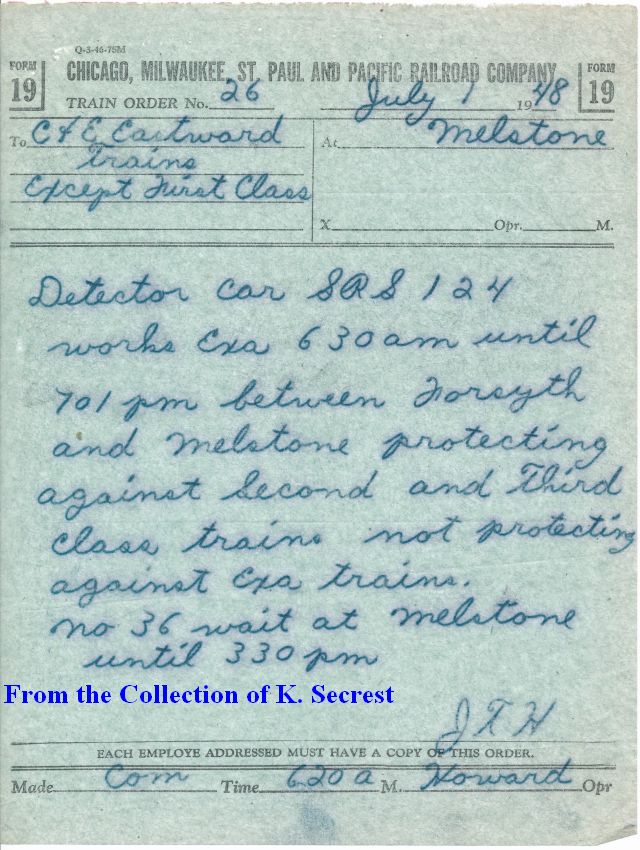 Q-5-46-75M
FORM 19 CHICAGO, MILWAUKEE, ST. PAUL AND PACIFIC RAILROAD COMPANY FORM 19
TRAIN ORDER No. 26 July 1 1948
To C & E Eastward At Melstone
Trains
Except First Class
X Opr. M.
Detector Car SRS 124
works Exa 630 am until
701 pm between Forsyth
and Melstone protecting
against Second and Third
Class trains not protecting
against Exa trains.
No 36 wait at Melstone
until 330 pm
From the Collection of K. Secrest
J T H
EACH EMPLOYE ADDRESSED MUST HAVE A COPY OF THIS ORDER.
Made Com Time 620 a M. Howard Opr